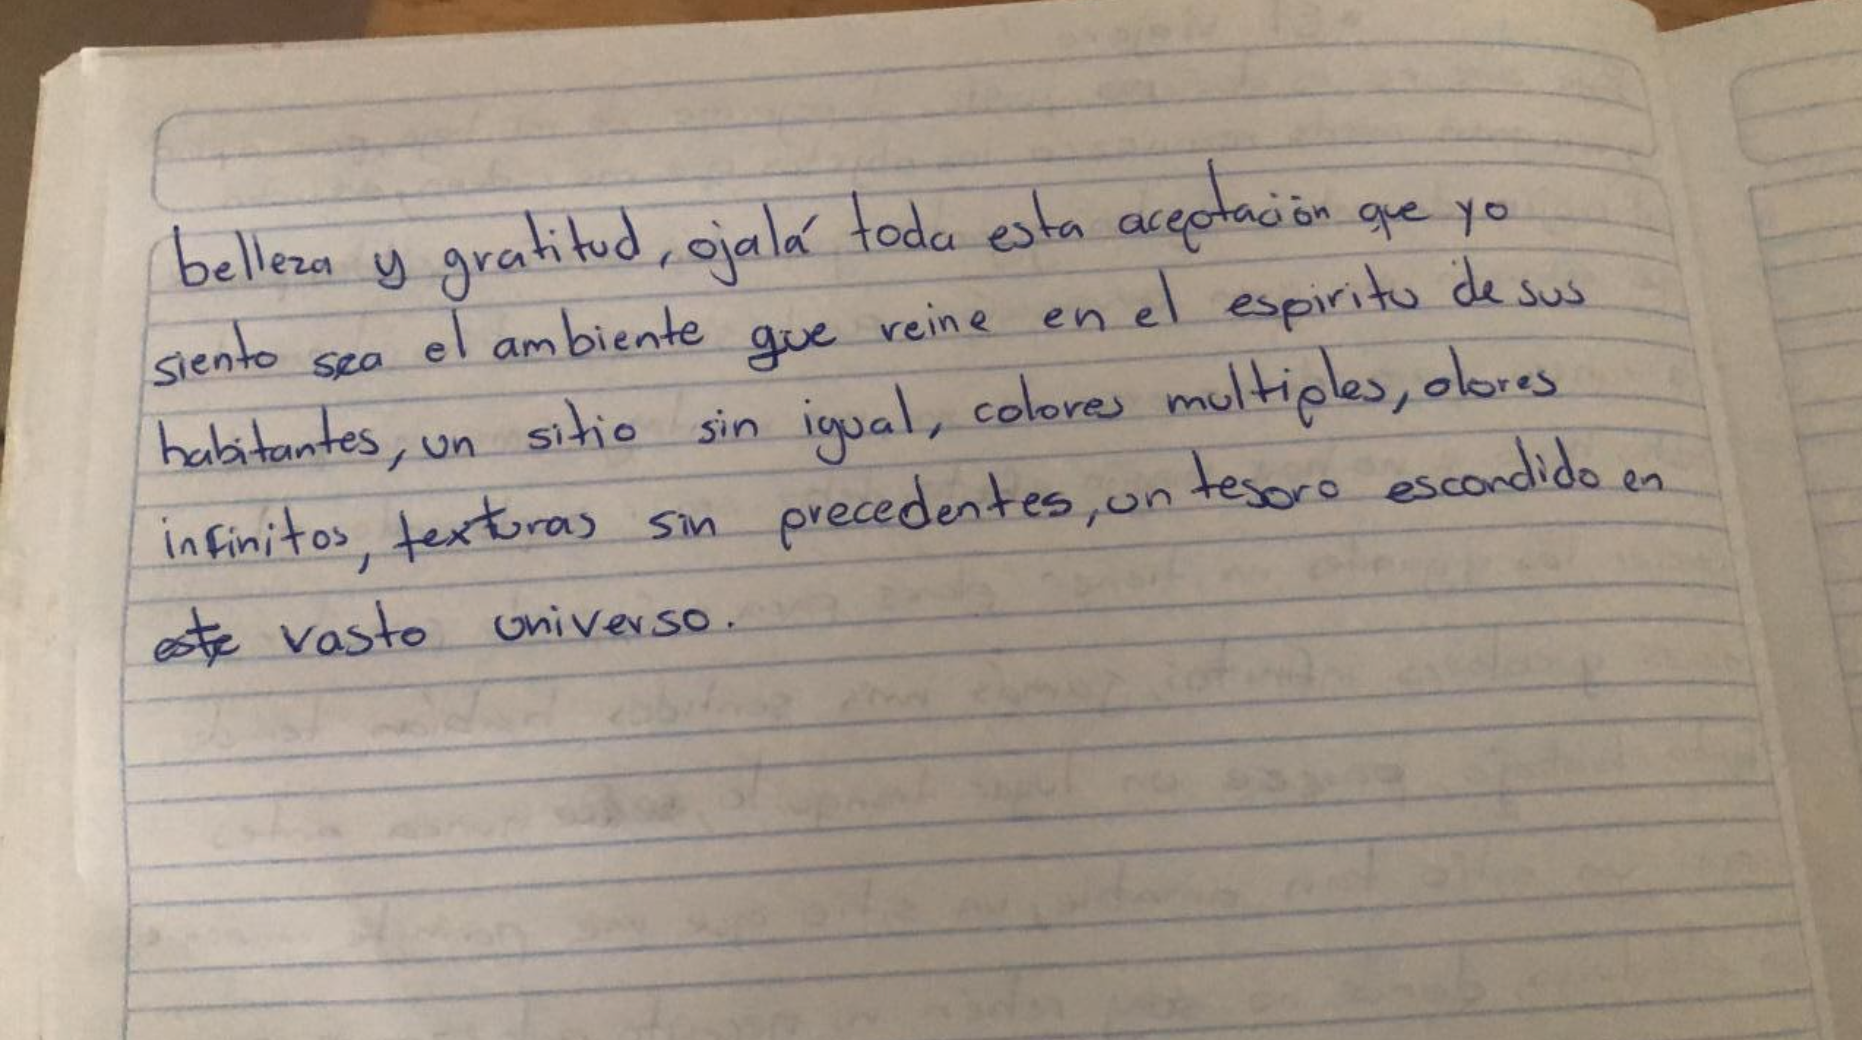 belleza y gratitud, ojalá toda esta aceptación que yo
siento sea el ambiente que reine en el espiritu de sus
habitantes, un sitio sin igual, colores multiples, olores
infinitos, texturas sin precedentes, un tesoro escondido en
este vasto universo.